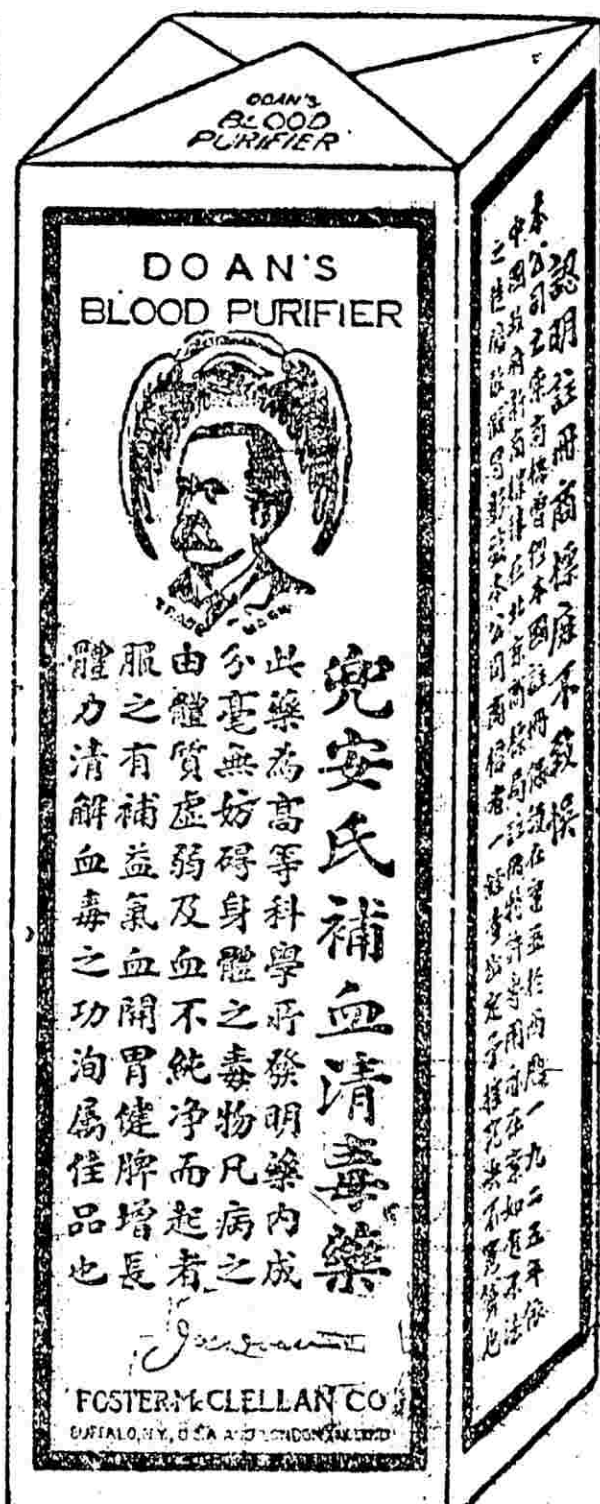 DOAN'S
BLOOD
PURIFIER
DOAN'S
BLOOD PURIFIER
TRADE MARK
兜安氏補血清毒藥
此藥為高等科學所發明藥內成
分毫無妨碍身體之毒物凡病之
由體質虛弱及血不純净而起者
服之有補益氣血開胃健脾增長
體力清解血毒之功洵属佳品也
FOSTER-McCLELLAN CO
BUFFALO, N.Y., U.S.A. AND LONDON
認明註冊商標庶不致悞
本公司已東商標曾經本國註冊保護在案並於西歷一九二五年依
中國政府新商標律在北京商標局註册特許專用亦在案如有不法
之徒
本公司商標者一經查出定予